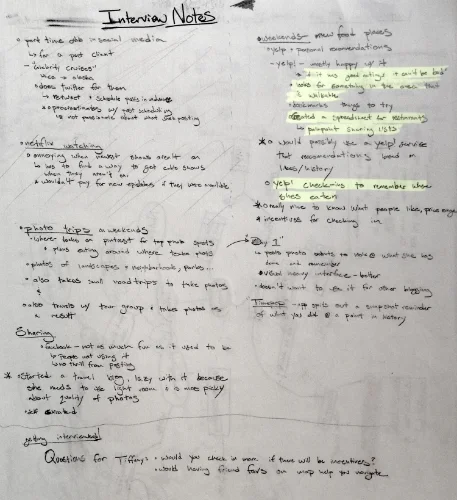 Interview Notes
• part time job - social media
↳ for a past client
- "celebrity cruises"
• does twitter for them
↳ retweet + schedule posts in advance
↳ not passionate about what she's posting
• netflix watching
• annoying when newest shows aren't on
↳ has to find a way to get cable shows
when they aren't on
• wouldn't pay for new episodes if they were available
• photo trips on weekends
• where looks on pinterest for top photo spots
• plans eating around where
• photos of landscapes + neighborhoods, parks...
• also takes small road trips to take photos
• also travels w/ tour group & takes photos as
a result
Sharing
• facebook - not as much fun as it used to be
↳ people not using it
no thrill from posting
* • started a travel blog, lazy with it because
she needs to use light room & is more picky
about quality of photos
getting interviewed!
Questions for Tiffany: • would you check in more if there will be incentives?
• would having friend favs on map help you navigate
• weekends - new food places
• yelp + personal recommendations
- yelp! - mostly happy w/ it
• if it has good ratings it can't be bad
looks for something in the area that
is walkable
• bookmarks things to try
created a spreadsheet for restaurants
↳ pinpoint sharing lists
* • would possibly use a yelp! service
that recommendations based on
likes/history
• yelp! checking to remember where
she's eaten
* really nice to know what people like, price range
* incentives for checking in
"Day 1"
↳ posts photo outfits to what she has
done and remember
• visual heavy interface - better
• doesn't want to use it for other blogging
Timehop - app spits out a snapshot reminder
of what you did @ a point in history